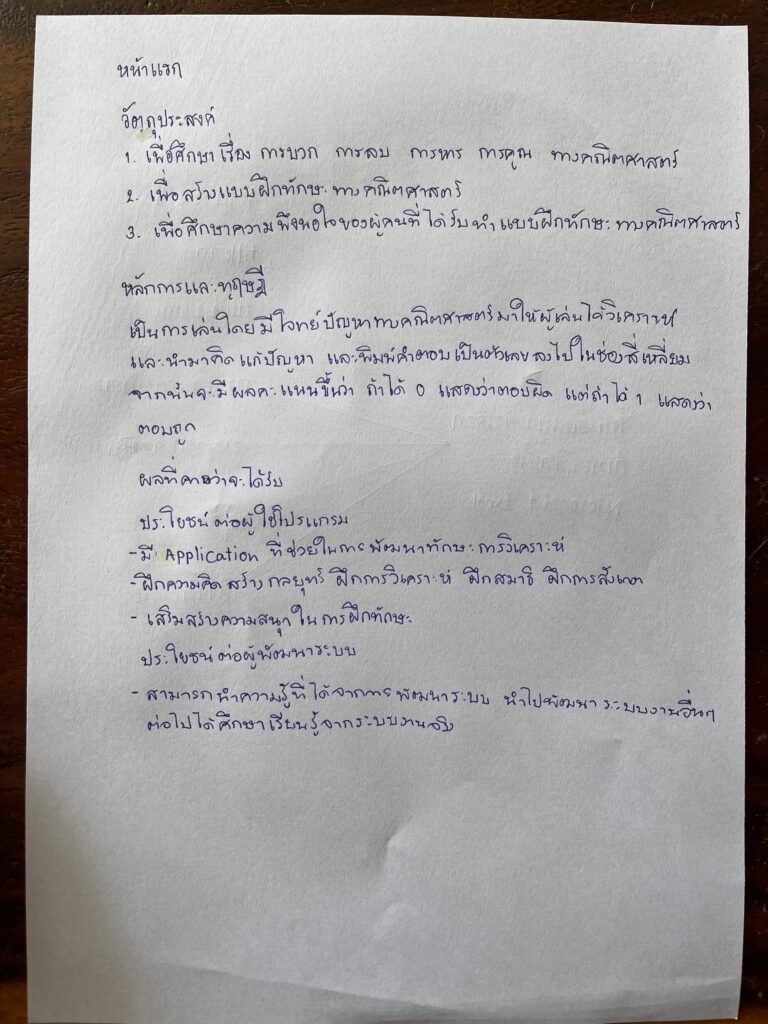 หน้าแรก
วัตถุประสงค์
1. เพื่อศึกษา เรื่อง การบวก การลบ การหาร การคูณ ทางคณิตศาสตร์
2. เพื่อสร้างแบบฝึกทักษะทางคณิตศาสตร์
3. เพื่อศึกษาความพึงพอใจของผู้คนที่ได้รับทำแบบฝึกทักษะทางคณิตศาสตร์
หลักการและทฤษฎี
เป็นการเล่นโดยมีโจทย์ปัญหาทางคณิตศาสตร์มาให้ผู้เล่นได้วิเคราะห์
และนำมาคิดแก้ปัญหา และพิมพ์คำตอบเป็นตัวเลขลงไปในช่องสี่เหลี่ยม
จากนั้นจะมีผลคะแนนขึ้นว่า ถ้าได้ 0 แสดงว่าตอบผิด แต่ถ้าได้ 1 แสดงว่า
ตอบถูก
ผลที่คาดว่าจะได้รับ
ประโยชน์ต่อผู้ใช้โปรแกรม
- มี Application ที่ช่วยในการพัฒนาทักษะการวิเคราะห์
- ฝึกความคิดสร้างกลยุทธ์ ฝึกการวิเคราะห์ ฝึกสมาธิ ฝึกการสังเกต
- เสริมสร้างความสนุกในการฝึกทักษะ
ประโยชน์ต่อผู้พัฒนาระบบ
- สามารถนำความรู้ที่ได้จากการพัฒนาระบบ นำไปพัฒนาระบบงานอื่นๆ
ต่อไปได้ศึกษาเรียนรู้จากระบบงานจริง